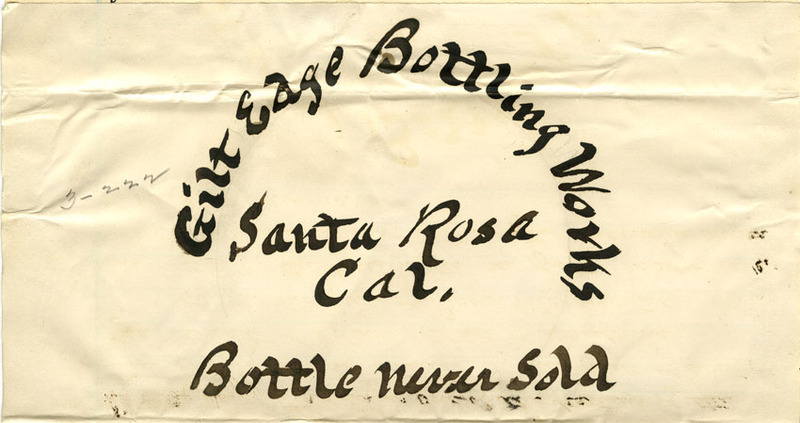 Gilt Edge Bottling Works
Santa Rosa
Cal.
Bottle never Sold
3-222